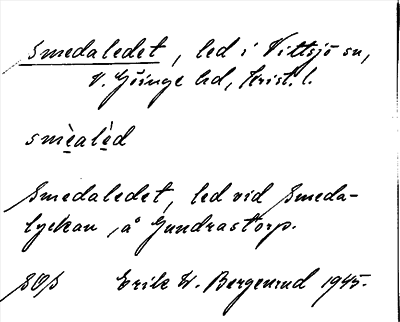 Smedaledet, led i Vittsjö sn,
V. Göinge hd, Krist. l.
smèalèd
Smedaledet, led vid Smeda-
lyckan, å Gundrastorp.
Erik W. Bergenrud 1945.